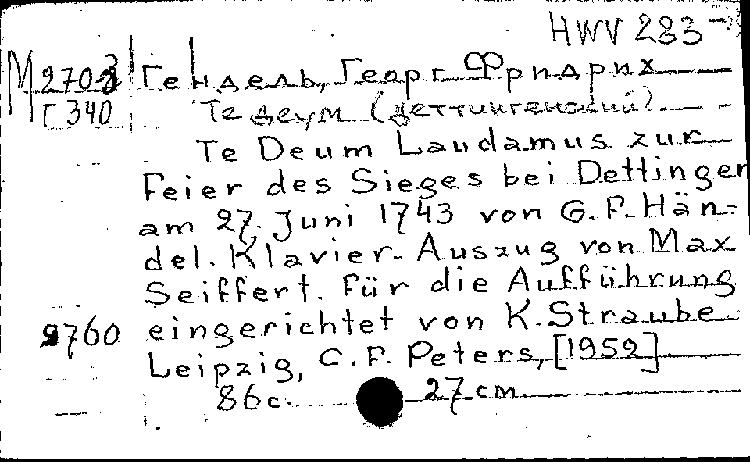 HWV 283
M 2703 Гендель, Георг Фридрих
Г 340 Те деум (деттингенский).
Te Deum Laudamus zur
Feier des Sieges bei Dettingen
am 27. Juni 1743 von G. F. Hän-
del. Klavier-Auszug von Max
Seiffert. Für die Aufführung
9760 eingerichtet von K. Straube
Leipzig, C. F. Peters, [1959]
86 с. 27 cm